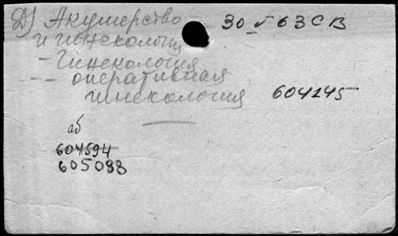 Д) Акушерство 30 г 63 СВ
и гинекология
- Гинекология
-- оперативная
гинекология 604245
аб
604594
605088